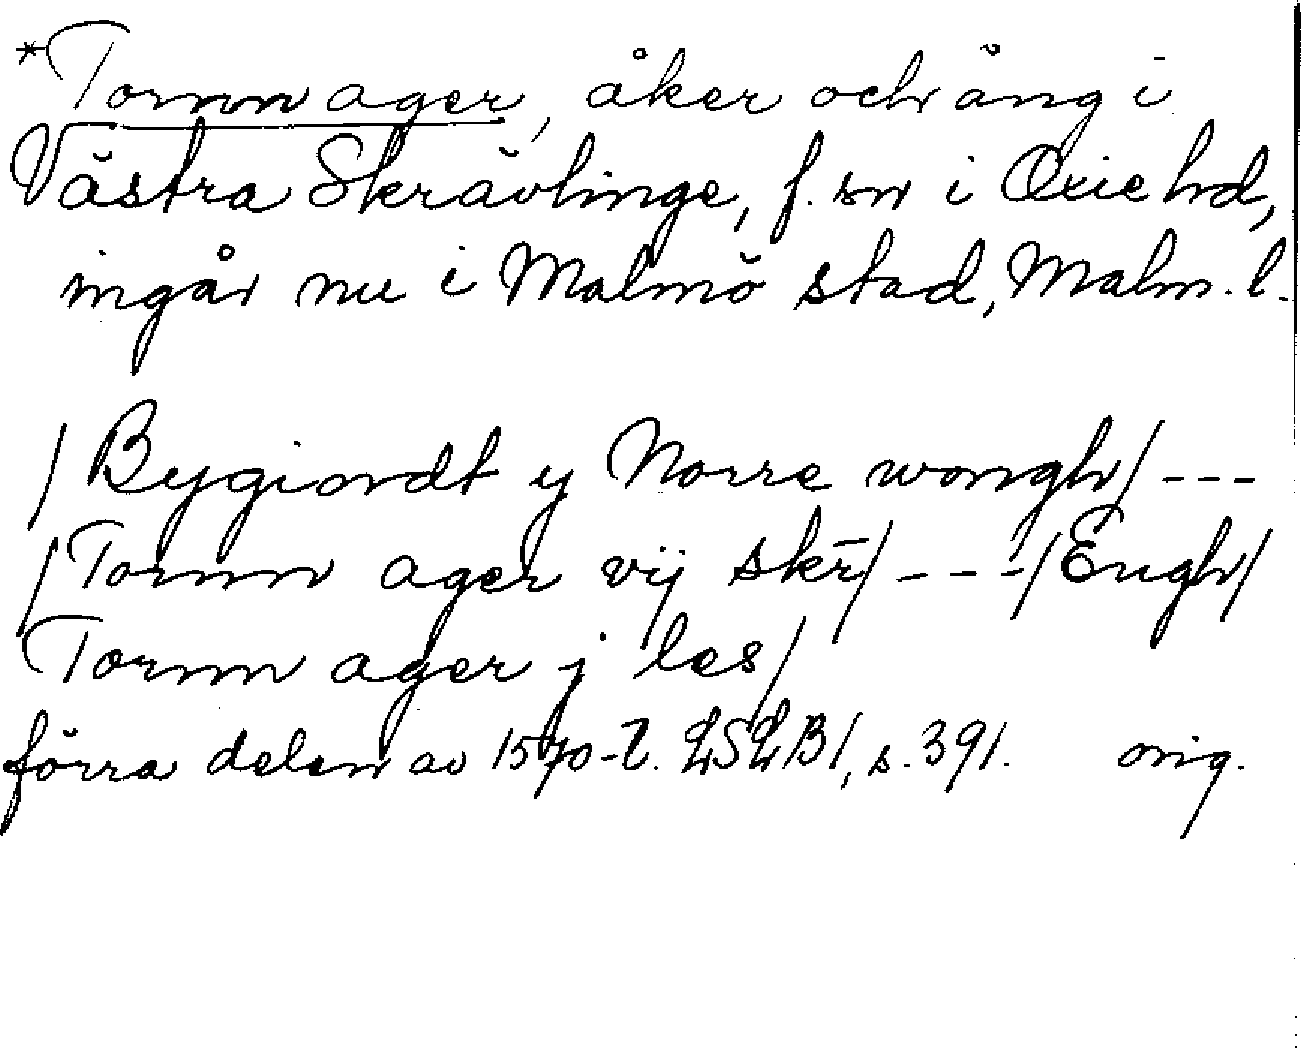 *Tornn ager, åker och äng i
Västra Skrävlinge, f. sn i Oxie hd,
ingår nu i Malmö stad, Malm. l.
/Bygiordt y Norre wongh/ ---
/Tornn ager vij skr̄/ ---/Engh/
Tornn ager j les/
förra delen av 1570-t. LSLB1, s. 391. orig.